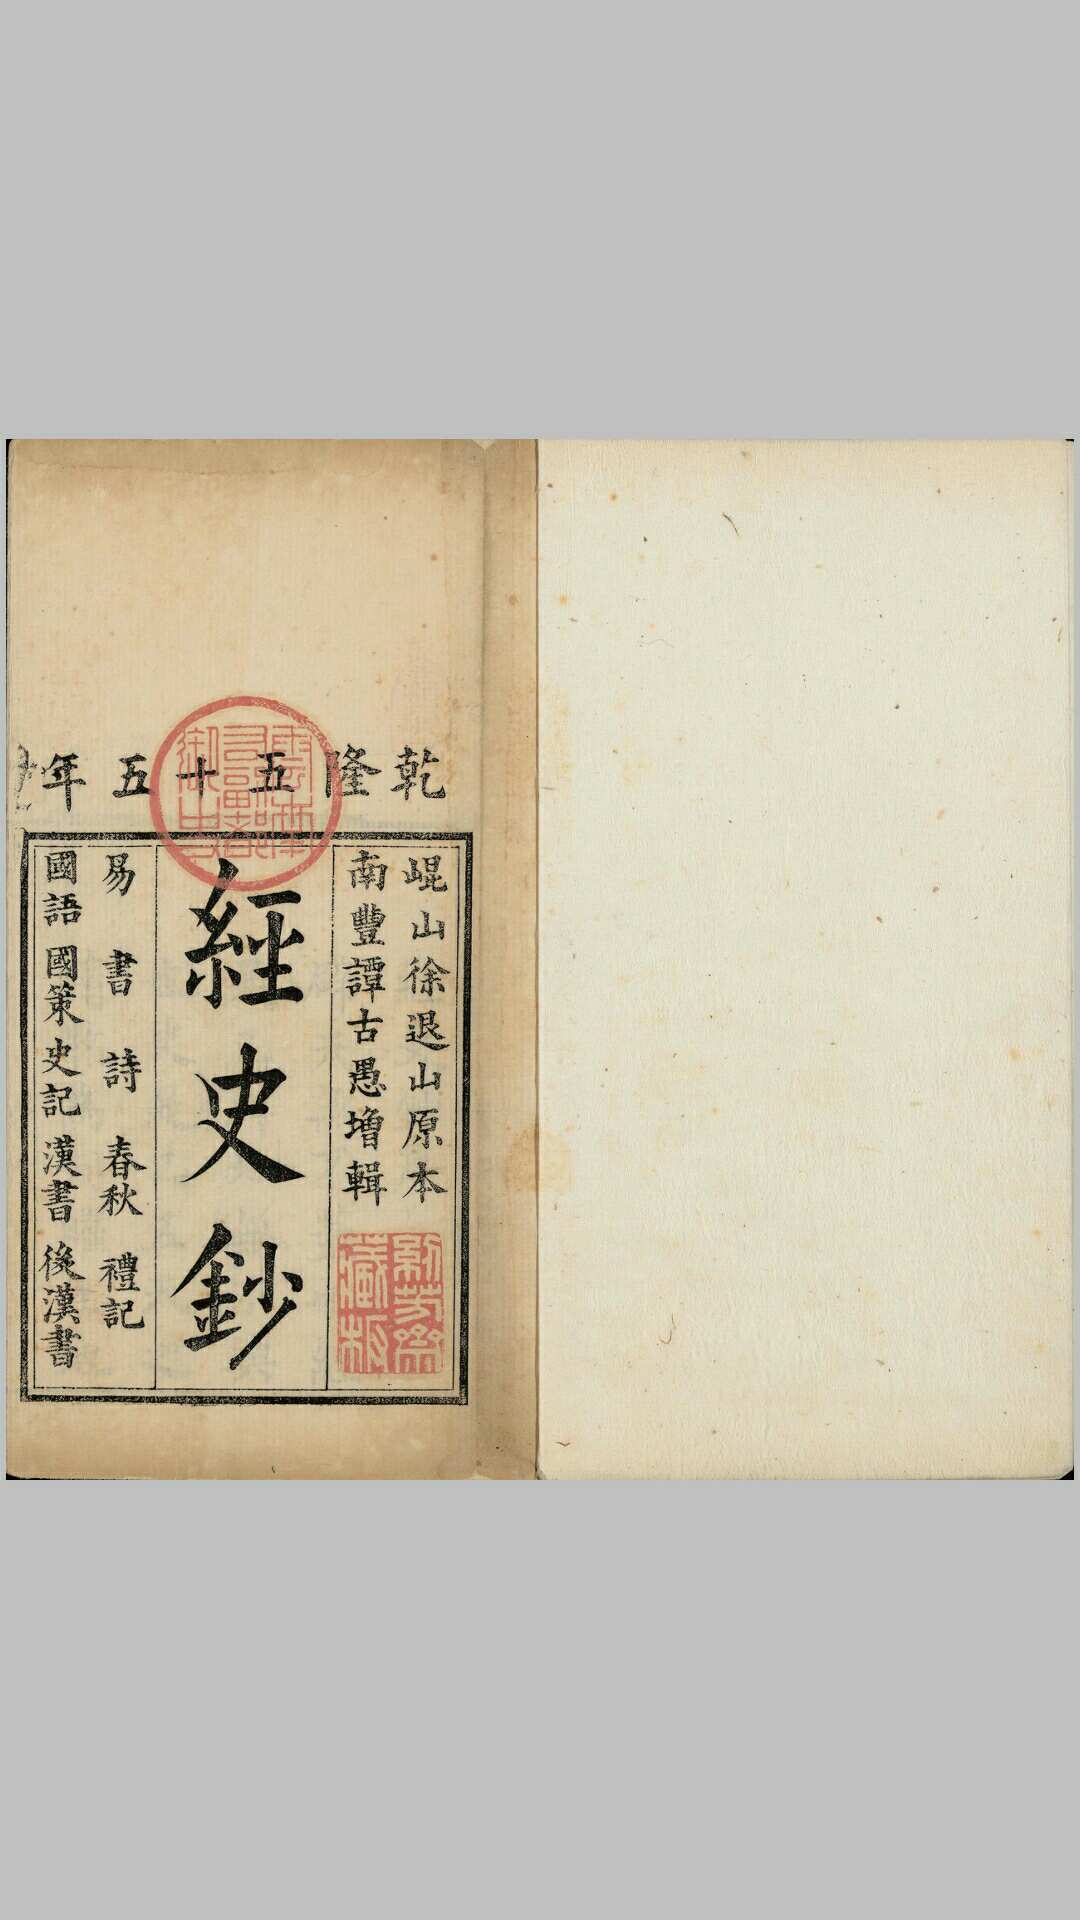 乾隆五十五年
崐山徐退山原本
南豐譚古愚增輯
經史鈔
易 書 詩 春秋 禮記
國語 國策 史記 漢書 後漢書
藏板